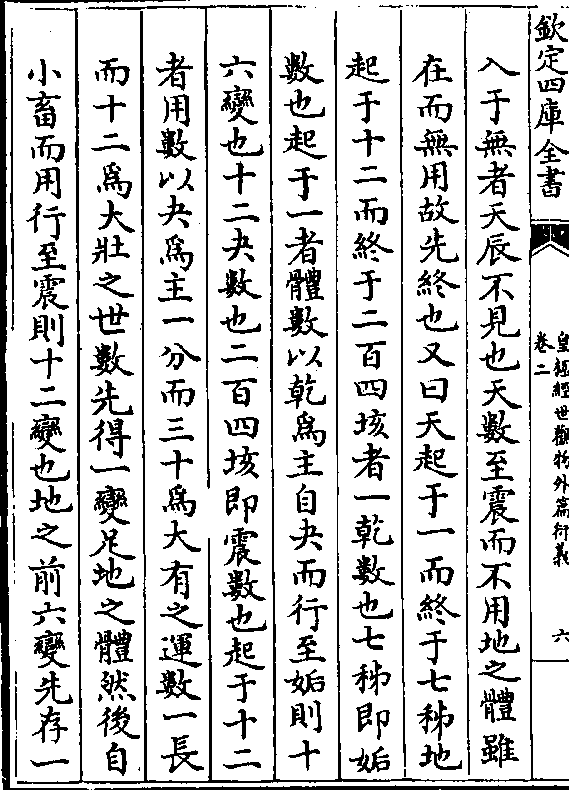 欽定四庫全書
皇極經世觀物外篇衍義
卷二
六
入于無者天辰不見也天數至震而不用地之體雖
在而無用故先終也又曰天起于一而終于七秭地
起于十二而終于二百四垓者一乾數也七秭即姤
數也起于一者體數以乾為主自夬而行至姤則十
六變也十二夬數也二百四垓即震數也起于十二
者用數以夬為主一分而三十為大有之運數一長
而十二為大壯之世數先得一變足地之體然後自
小畜而用行至震則十二變也地之前六變先存一